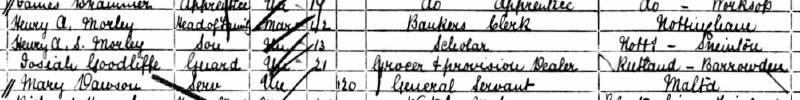 James Brammer Apprentice Un 19 do Apprentice do - Worksop
Henry A. Morley Head of Family Mar 42 Bankers Clerk Nottingham
Henry A. S. Morley Son Un 13 Scholar Notts - Sneinton
Josiah Goodliffe Guard Un 21 Grocer & provision Dealer Rutland - Barrowden
Mary Dawson Serv Un 20 General Servant Malta